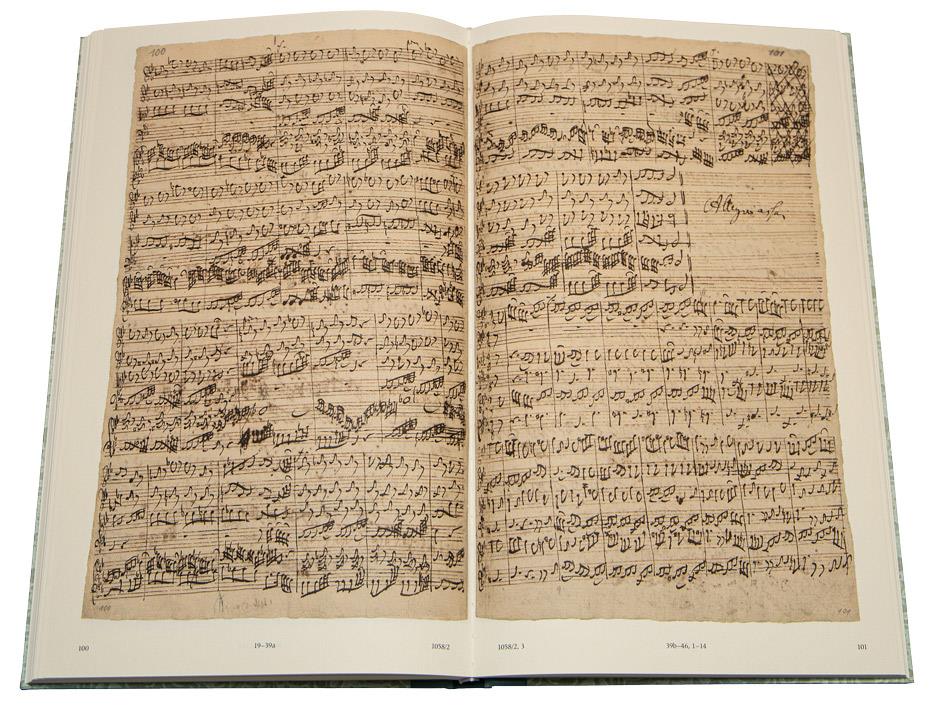 100
101
Allegro assai
100
101
100
19–39a
1058/2
1058/2, 3
39b–46, 1–14
101